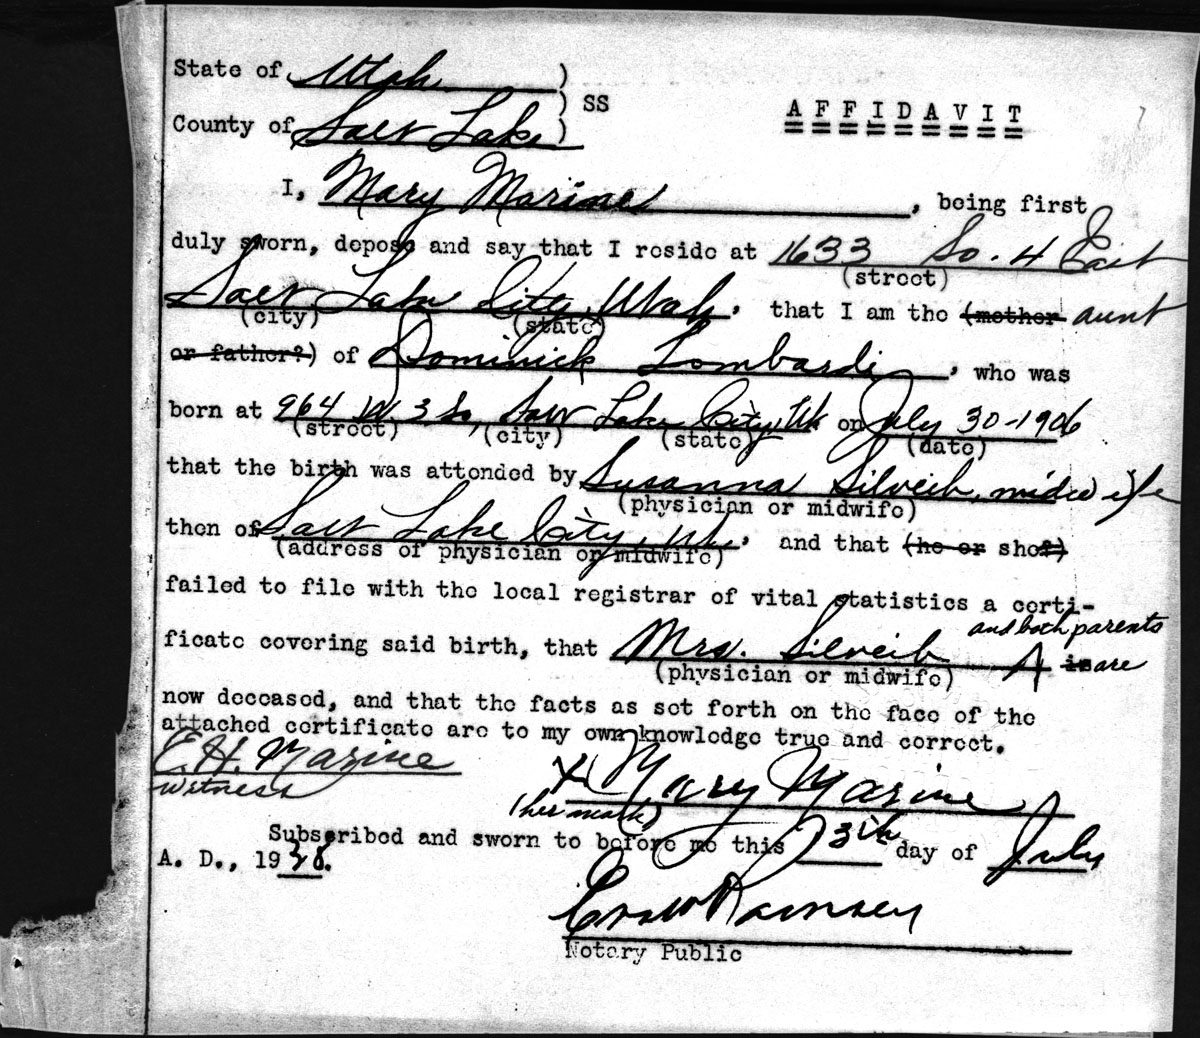 State of Utah )
) SS
AFFIDAVIT
County of Salt Lake )
I, Mary Marine, being first
duly sworn, depose and say that I reside at 1633 So. 4 East
(street)
Salt Lake City, Utah, that I am the (mother aunt
(city) (state)
or father?) of Dominick Lombardi, who was
born at 964 W. 3 So, Salt Lake City, Ut on July 30-1906
(street) (city) (state) (date)
that the birth was attended by Susanna Silveib, midwife
(physician or midwife)
then of Salt Lake City, Ut. and that (he or she?)
(address of physician or midwife)
failed to file with the local registrar of vital statistics a certi-
and both parents
ficate covering said birth, that Mrs. Silveib is are
(physician or midwife)
now deceased, and that the facts as set forth on the face of the
attached certificate are to my own knowledge true and correct.
E. H. Marine
witness
X Mary Marine
(her mark)
Subscribed and sworn to before me this 13th day of July
A. D., 1938.
Ramsey
Notary Public